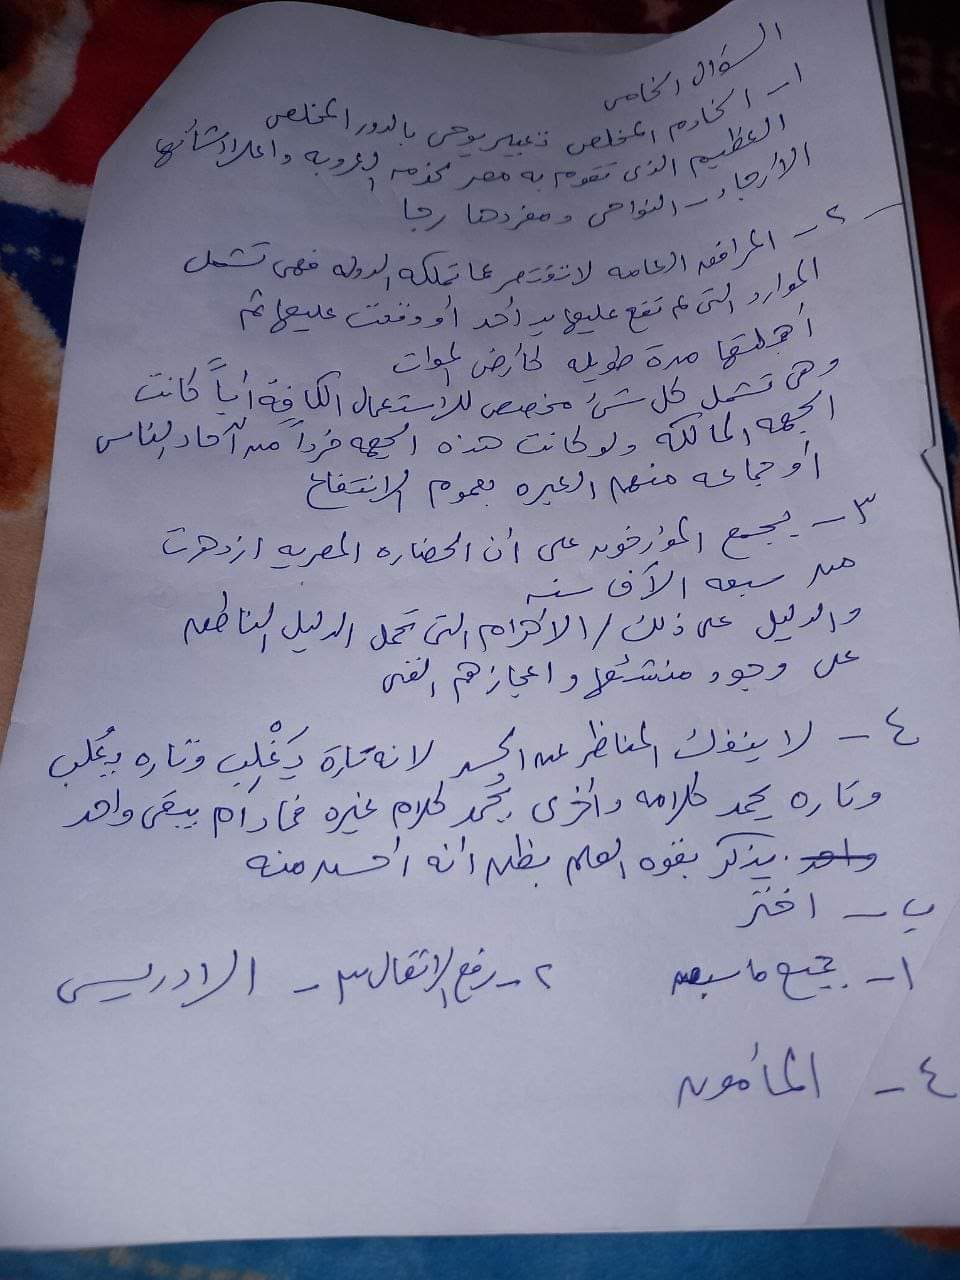 السؤال الخامس
١- الخادم المخلص تعبير يوحى بالدور المخلص
العظيم الذى تقوم به مصر لخدمه العروبه واعلاء شأنها
الأرجاء - النواحى ومفردها رجا
٢- المرافق العامه لا تقتصر عما تملكه الدوله فهى تشمل
الموارد التى لم تقع عليها يد أحد أو وقعت عليها ثم
أهملتها مدة طويله كأرض الموات
وهى تشمل كل شئ مخصص للاستعمال الكافة أياً كانت
الجهه المالكه ولو كانت هذه الجهه فرداً من آحاد الناس
أو جماعه منهم العبره بعموم الانتفاع
٣- يجمع المؤرخون على أن الحضاره المصريه ازدهرت
من سبعه الآف سنه
والدليل على ذلك / الاهرام التى تحمل الدليل الناطق
على وجود منشئها واعجازهم الفنى
٤- لا ينفك المناظر عن الحسد لانه تارة يَغْلِب وتاره يُغلب
وتاره يحمد كلامه وأخرى يحُمد كلام غيره فمادام يبقى واحد
يذكر بقوه العلم يظن انه احسن منه
ب - اختر
١- جميع ما سبق ٢- رفع الاثقال ٣- الادريسى
٤- المأمون